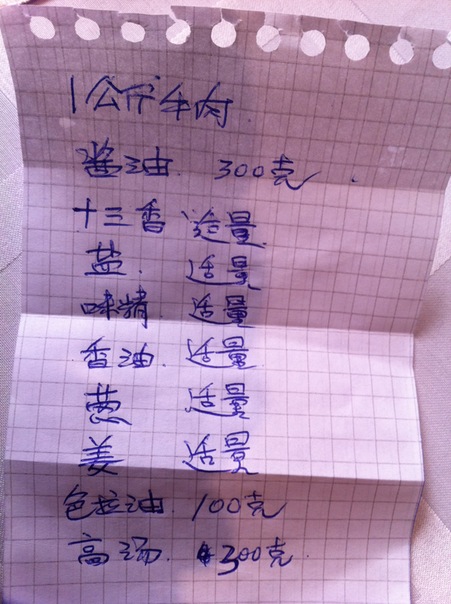 1公斤牛肉
酱油 300克
十三香 适量
盐 适量
味精 适量
香油 适量
葱 适量
姜 适量
色拉油 100克
高汤 300克